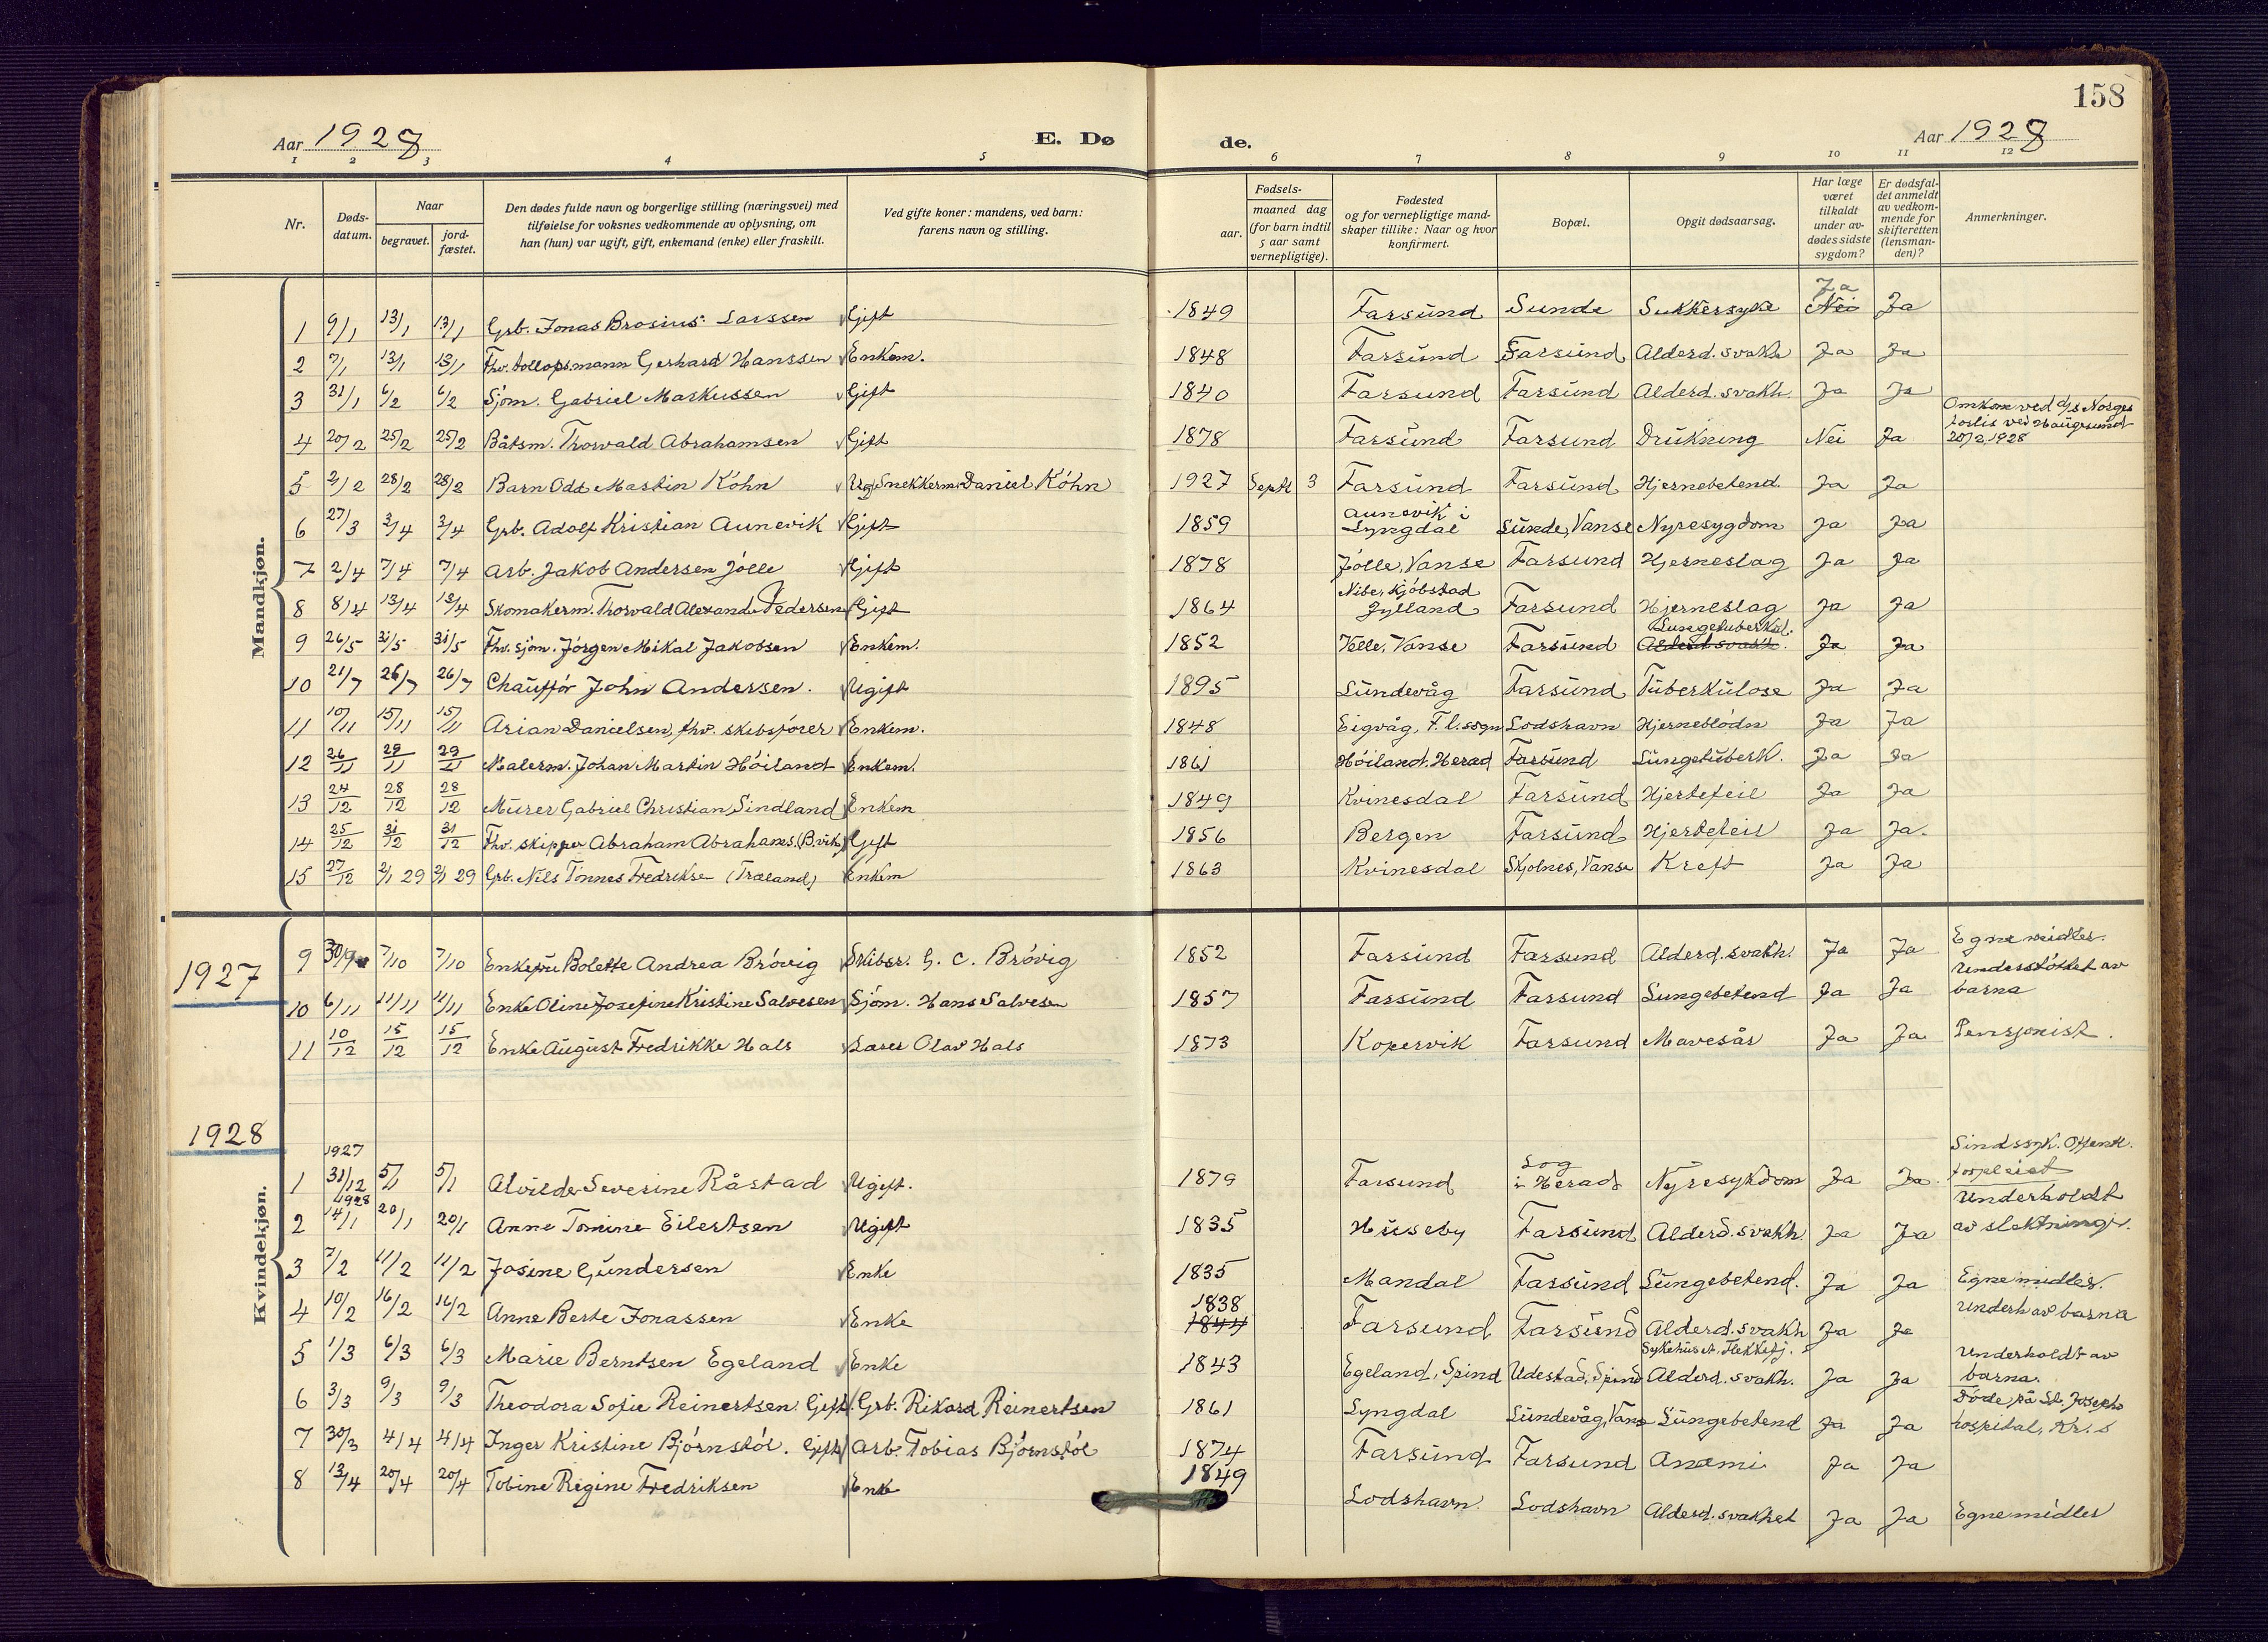 158
Aar 1928 E. Dø de. Aar 1928
1 2 3 4 5 6 7 8 9 10 11 12
Nr. Døds-datum. Naar begravet. jord-fæstet. Den dødes fulde navn og borgerlige stilling (næringsvei) med tilføielse for voksnes vedkommende av oplysning, om han (hun) var ugift, gift, enkemand (enke) eller fraskilt. Ved gifte koner: mandens, ved barn: farens navn og stilling. Fødsels- aar. maaned dag (for barn indtil 5 aar samt vernepligtige). Fødested og for vernepligtige mand-skaper tillike: Naar og hvor konfirmert. Bopæl. Opgit dødsaarsag. Har læge været tilkaldt under av-dødes sidste sygdom? Er dødsfal-det anmeldt av vedkom-mende for skifteretten (lensman-den)? Anmerkninger.
Mandkjøn.
1 9/1 13/1 13/1 Grb. Jonas Brosius Larssen Gift 1849 Farsund Sunde Sukkersyke Nei Ja Ja
2 7/1 13/1 13/1 Fhv. tollopsmann Gerhard Hanssen Enkem. 1848 Farsund Farsund Alderd. svakh Ja Ja
3 31/1 6/2 6/2 Sjøm. Gabriel Markussen Gift 1840 Farsund Farsund Alderd. svakh. Ja Ja
4 20/2 25/2 25/2 Båtsm. Thorvald Abrahamsen Gift 1878 Farsund Farsund Drukning Nei Ja Omkom ved d/s Norges forlis ved Haugesund 20/2 1928
5 2/2 28/2 28/2 Barn Odd Martin Köhn Ug. Snekkerm. Daniel Köhn 1927 Septb 3 Farsund Farsund Hjernebetend. Ja Ja
6 27/3 3/4 3/4 Grb. Adolf Kristian Aunevik Gift 1859 Aunevik i Lyngdal Sunde, Vanse Nyresygdom Ja Ja
7 2/4 7/4 7/4 Arb. Jakob Andersen Jölle Gift 1878 Jölle, Vanse Farsund Hjerneslag Ja Ja
8 8/4 13/4 13/4 Skomakerm. Thorvald Alexand. Pedersen Gift 1864 Nibe, Kjöbstad Jylland Farsund Hjerneslag Ja Ja
9 26/5 31/5 31/5 Fhv. sjøm. Jörgen Mikal Jakobsen Enkem. 1852 Velle, Vanse Farsund Lungetuberkul. Alderd. svakh. Ja Ja
10 21/7 26/7 26/7 Chauffór John Andersen. Ugift 1895 Lundevåg Farsund Tuberkulose Ja Ja
11 10/11 15/11 15/11 Arian Danielsen, fhv. skibsförer Enkem. 1848 Eigvåg, F. l.sogn Lodshavn Hjerneblödn Ja Ja
12 26/11 29/11 29/11 Malerm. Johan Martin Höiland Enkem. 1861 Höiland. Herad Farsund Lungetuberk. Ja Ja
13 24/12 28/12 28/12 Murer Gabriel Christian Sindland Enkem 1849 Kvinesdal Farsund Hjertefeil Ja Ja
14 25/12 31/12 31/12 Fhv. skipper Abraham Abrahams. (B.vik) Gift 1856 Bergen Farsund Hjertefeil Ja Ja.
15 27/12 2/1 29 2/1 29 Grb. Nils Tönnes Fredrikse (Træland) Enkem 1863 Kvinesdal Skjolnes, Vanse Kreft Ja Ja
1927
9 30/9 7/10 7/10 Enkefru Bolette Andrea Brövig Skibsr. G. C. Brövig 1852 Farsund Farsund Alderd. svakh. Ja Ja Egne midler.
10 6/11 11/11 11/11 Enke Oline Josefine Kristine Salvesen Sjöm. Hans Salvesen 1857 Farsund Farsund Lungebetend Ja Ja Understöttet av barna
11 10/12 15/12 15/12 Enke August Fredrikke Hals Lærer Olav Hals 1873 Kopervik Farsund Mavesår Ja Ja Pensjonist.
1928
Kvindekjøn.
1927
1 31/12 5/1 5/1 Alvilde Severine Råstad Ugift. 1879 Farsund Log i Herad Nyresykdom Ja Ja Sindssyk. Offentl. forpleiet
1928
2 14/1 20/1 20/1 Anne Tomine Eilertsen Ugift 1835 Huseby Farsund Alderd. svakh Ja Ja Underholdt av slektninger.
3 7/2 11/2 11/2 Josine Gundersen Enke 1835 Mandal Farsund Lungebetend. Ja Ja Egne midler.
4 10/2 16/2 16/2 Anne Berte Jonassen Enke 1838 1844 Farsund Farsund Alderd. svakh Ja Ja Underh av barna
5 1/3 6/3 6/3 Marie Berntsen Egeland Enke 1843 Egeland, Spind Udestad, Spind Sykehuset, Flekkefj. Alderd. svakh. Ja Ja Underholdt av barna.
6 3/3 9/3 9/3 Theodora Sofie Reinertsen. Gift Grb. Rikard Reinertsen 1861 Lyngdal Lundevåg, Vanse Lungebetend Ja Ja Døde på St. Josephs hospital, Kr. S
7 30/3 4/4 4/4 Inger Kristine Björnstöl. Gift Arb. Tobias Björnstöl 1874 Farsund Farsund Anæmi Ja Ja
8 13/4 20/4 20/4 Tobine Regine Fredriksen Enke 1849 Lodshavn. Lodshavn Alderd. svakhet Ja Ja Egne midler